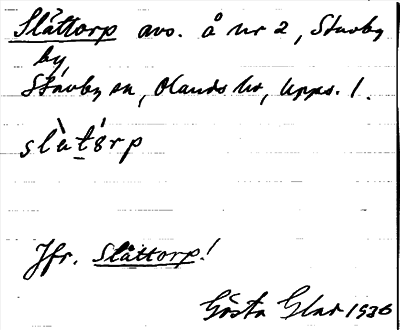 Slåttorp avs. å nr 2, Stavby
by,
Stavby sn, Olands hd, Upps. l.
slàtórp
Jfr. Slåttorp!
Gösta Glad 1936